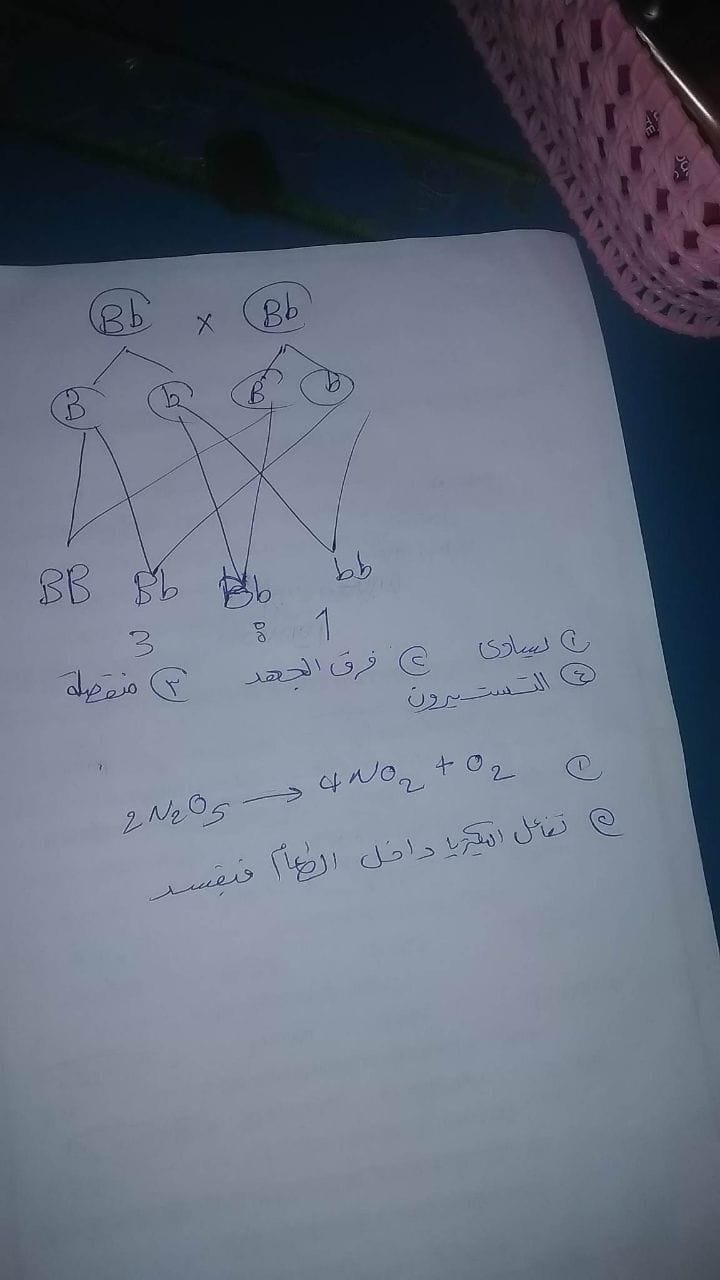 Bb x Bb
B b B b
BB Bb Bb bb
3 : 1
١ يساوى ٢ فرق الجهد ٣ منفصلة
٤ التستيرون
١ 2N2O5 → 4NO2 + O2
٢ تفاعل البكتريا داخل الطعام فيفسد